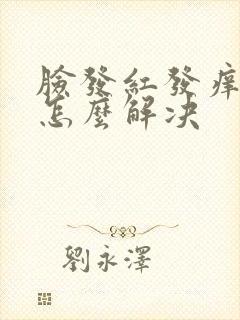 臉發紅發痒
怎麼解决
劉永澤